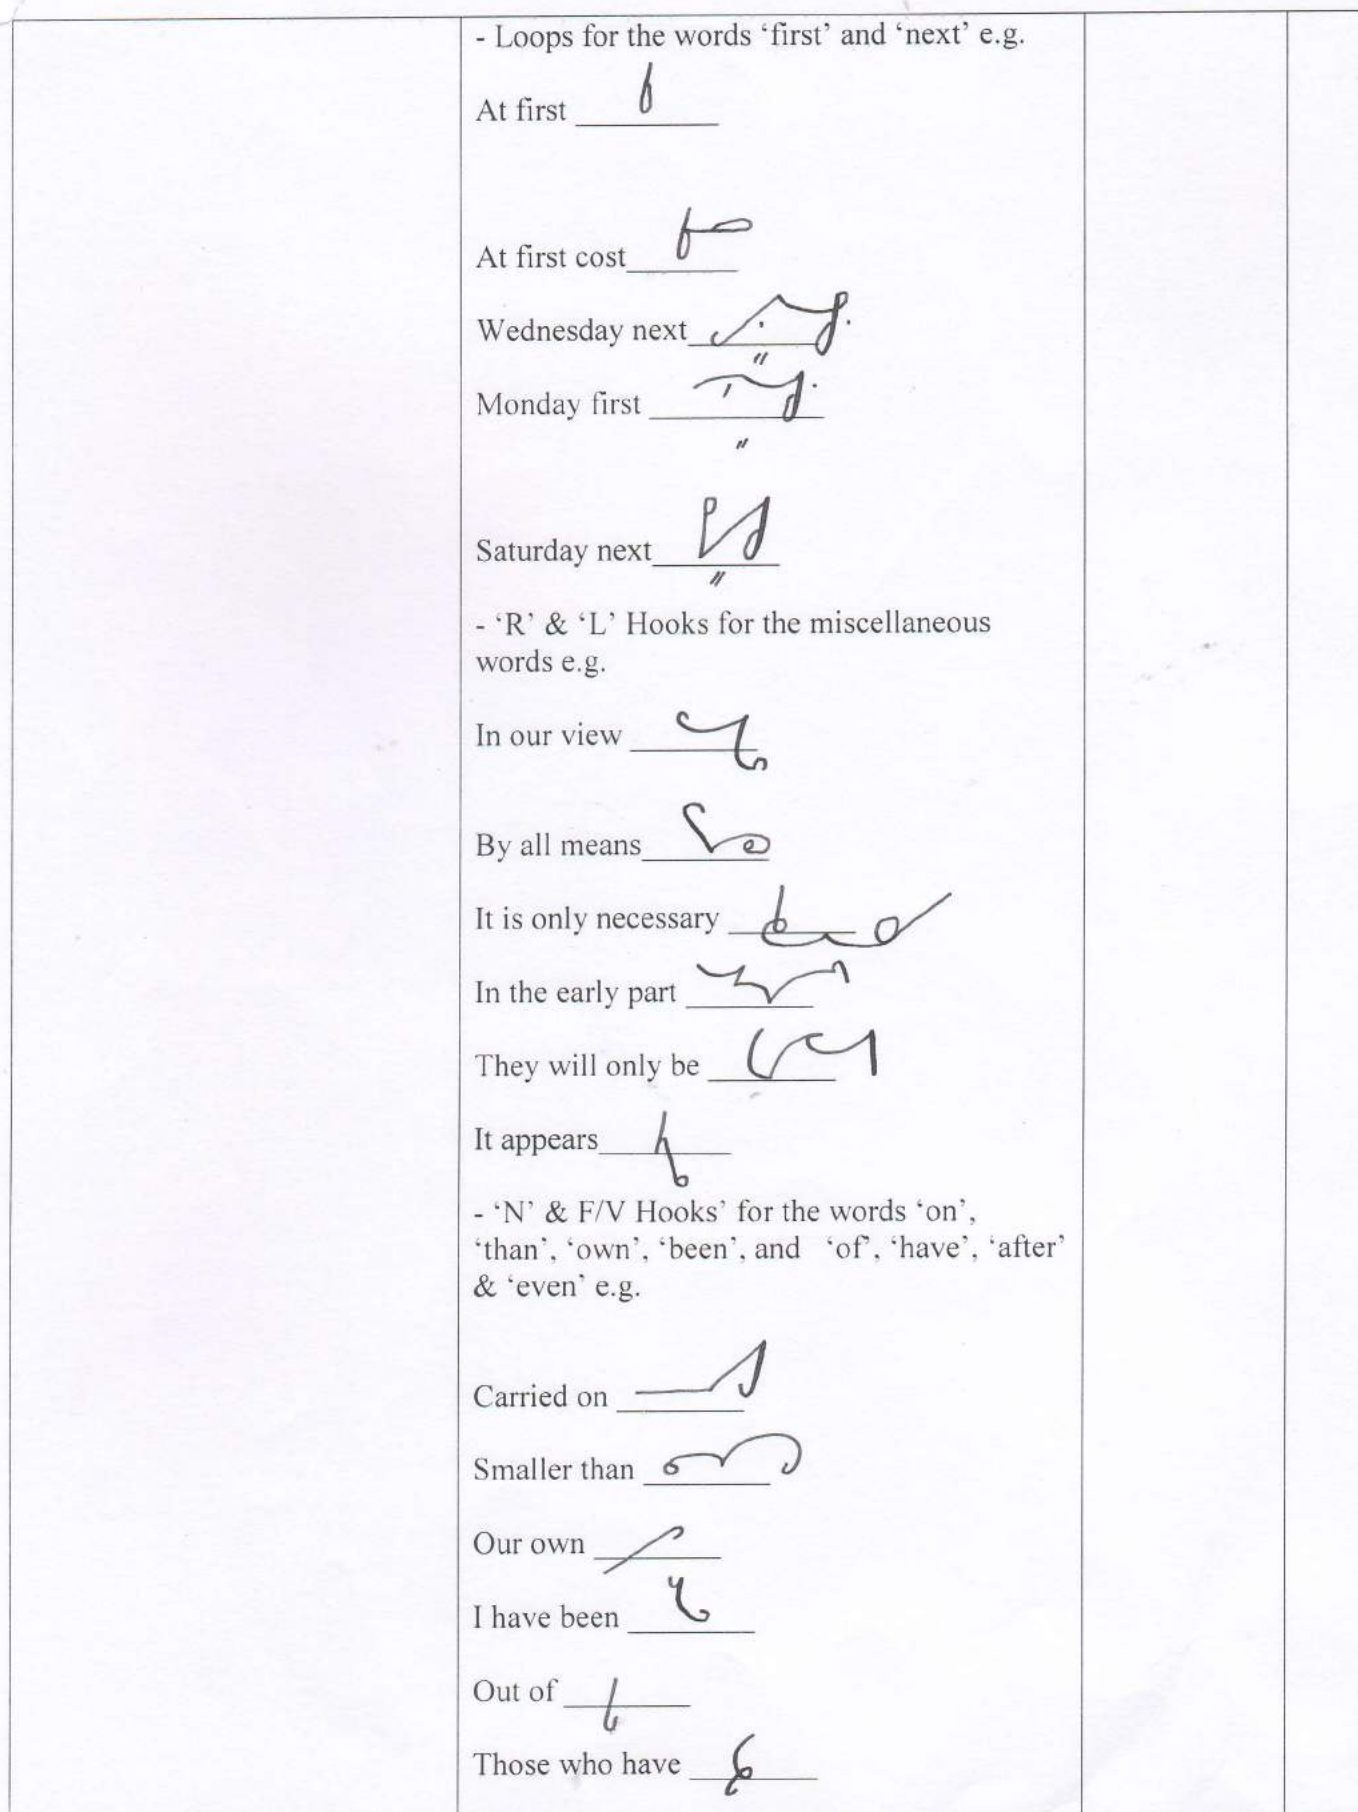 - Loops for the words ‘first’ and ‘next’ e.g.
At first
At first cost
Wednesday next
Monday first
Saturday next
- ‘R’ & ‘L’ Hooks for the miscellaneous
words e.g.
In our view
By all means
It is only necessary
In the early part
They will only be
It appears
- ‘N’ & F/V Hooks’ for the words ‘on’,
‘than’, ‘own’, ‘been’, and ‘of’, ‘have’, ‘after’
& ‘even’ e.g.
Carried on
Smaller than
Our own
I have been
Out of
Those who have